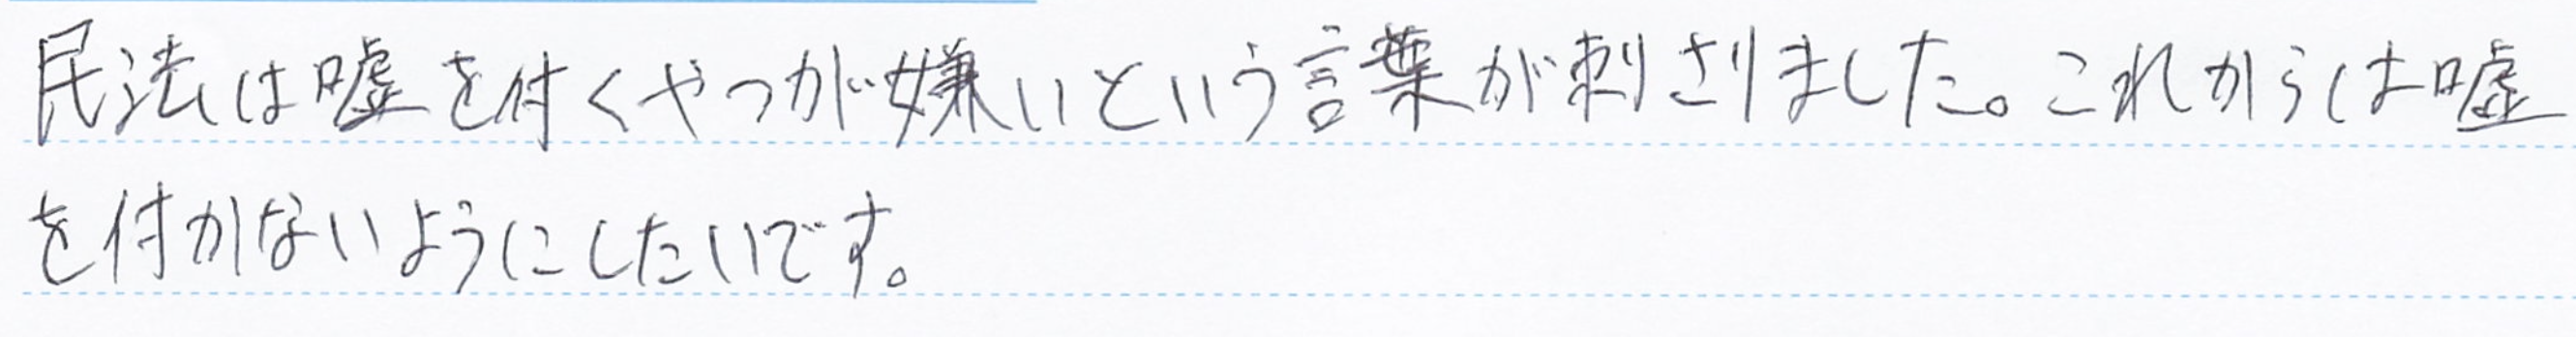 民法は嘘を付くやつが嫌いという言葉が刺さりました。これからは嘘
を付かないようにしたいです。